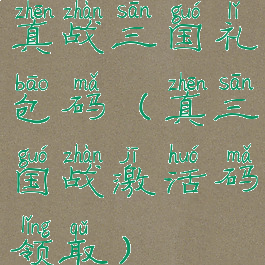 zhēn zhàn sān guó lǐ
真战三国礼
bāo mǎ zhēn sān
包码（真三
guó zhàn jī huó mǎ
国战激活码
lǐng qǔ
领取）